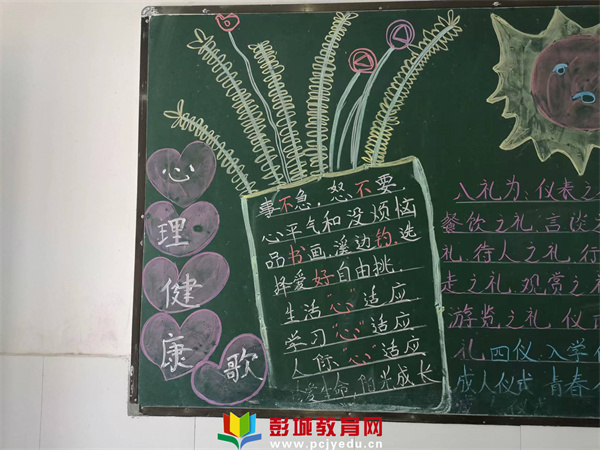 心
理
健
康
歌
事不急，怒不要，
心平气和没烦恼
品书画，溪边钓，选
择爱好自由挑，
生活“心”适应
学习“心”适应
人际“心”适应
爱生命，阳光成长
入礼为：仪表之
餐饮之礼，言谈之
礼，待人之礼，行
走之礼，观赏之礼
游览之礼，仪式
礼 四仪：入学仪
成人仪式 青春
彭城教育网
www.pcjyedu.cn